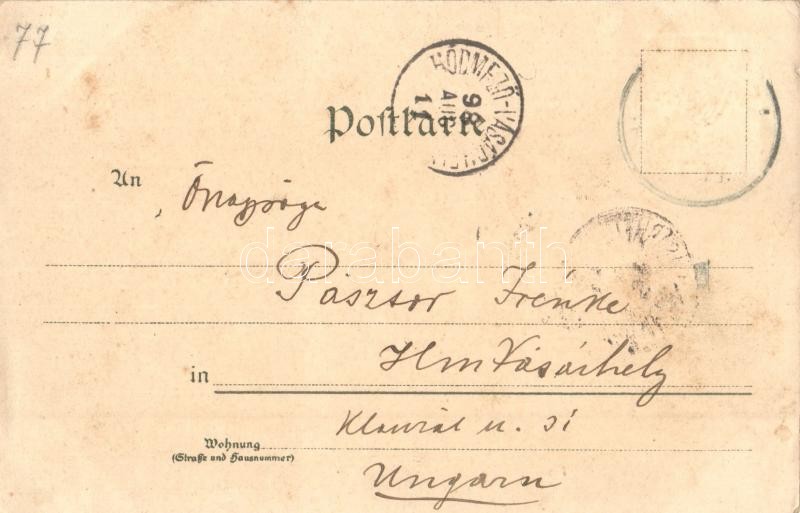 77
HÓDMEZŐ-VÁSÁRHELY
98
AUG
11
Postkarte
An
Őnagysága
Pásztor Irénke
in Hm Vásárhely
Klauzál u.
Wohnung
(Straße und Hausnummer)
Ungarn
darabanth